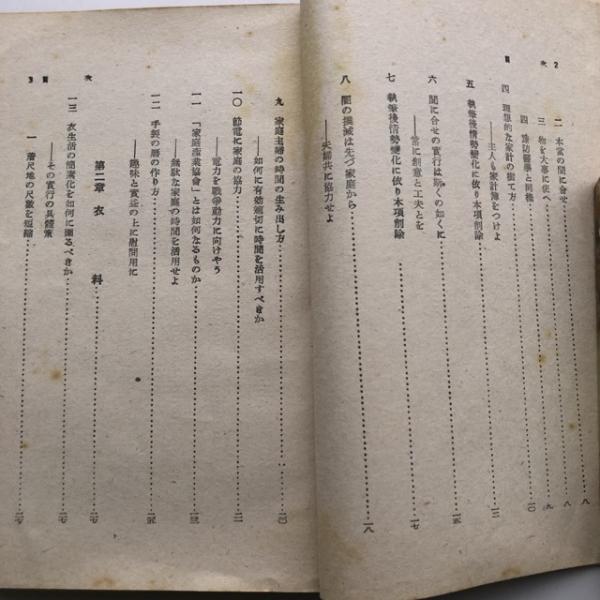 目次 2
二 本當の間に合せ………八
三 物を大事に使へ………八
四 豫防醫學と同樣………九
四 理想的な家計の樹て方………一〇
――主人も家計簿をつけよ
五 執筆後情勢變化に依り本項削除
六 間に合せの實行は斯くの如くに………一五
――常に創意と工夫とを
七 執筆後情勢變化に依り本項削除………一七
八 闇の撲滅は先づ家庭から………一八
――夫婦共に協力せよ
九 家庭主婦の時間の生み出し方………二〇
――如何に有効適切に時間を活用すべきか
一〇 節電に家庭の協力………二二
――電力を戰爭動力に向けやう
一一 「家庭産業協會」とは如何なるものか………二三
――無駄な家庭の時間を活用せよ
一二 手製の曆の作り方………二五
――趣味と實益の上に慰問用に
第二章 衣料………二七
一三 衣生活の簡素化を如何に圖るべきか………二七
――その實行の具體策
一 着尺地の尺數を短縮………二七
目次 3